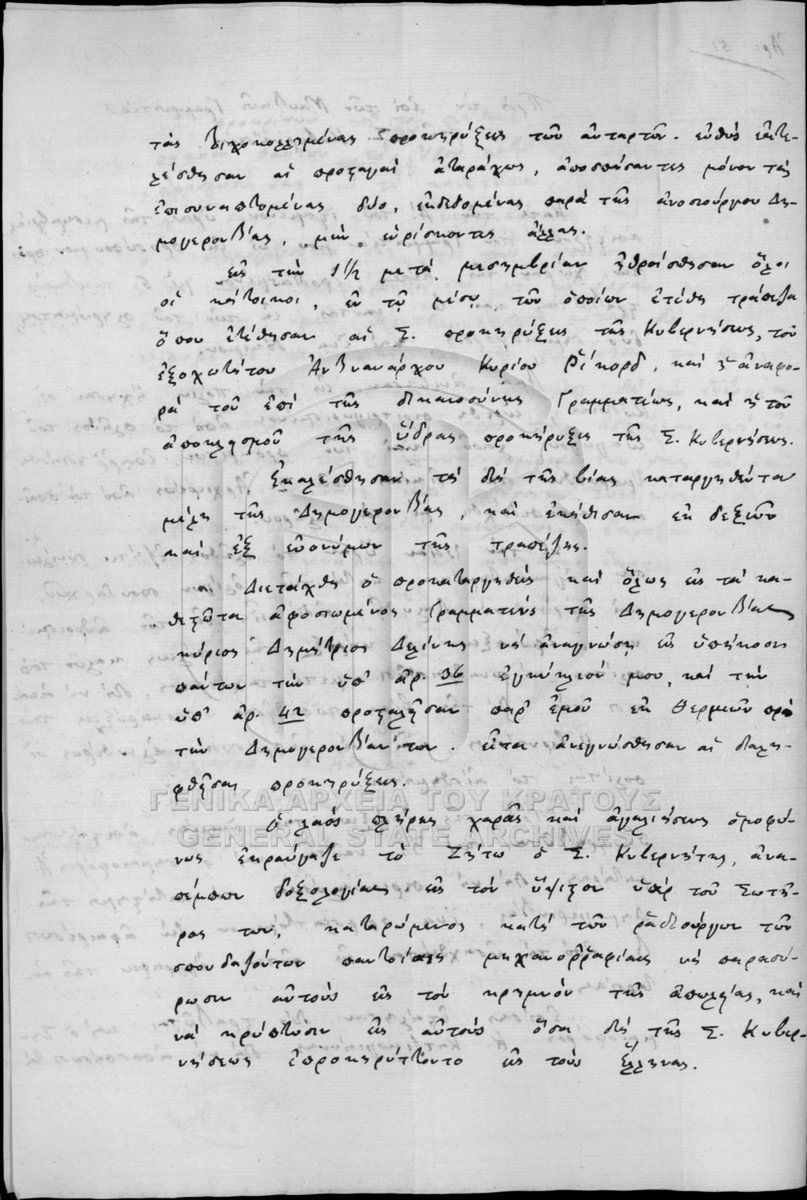 Ἀρ: 51
τὰς τειχοκολλημένας προκηρύξεις τῶν ἀνταρτῶν. εὐθὺς ἐξετε-
λέσθησαν αἱ προσταγαὶ ἀταράχως, ἀποσπάσαντες μόνον τὰς
ἐπισυναπτομένας δύο, ἐκδιδομένας παρὰ τῆς ἀνοσιούργου Δη-
μογεροντίας, μὴ εὑρίσκοντες ἄλλας.
εἰς τὴν 1 1/2 μετὰ μεσημβρίαν ἠθροίσθησαν ὅλοι
οἱ κάτοικοι, ἐν τῷ μέσῳ τῶν ὁποίων ἐτέθη τράπεζα
ὅπου ἐτέθησαν αἱ Σ. προκηρύξεις τῆς Κυβερνήσεως, τοῦ
ἐξοχωτάτου Ἀντιναυάρχου Κυρίου Ῥίκορδ, καὶ ἡ ἀναφο-
ρὰ τοῦ ἐπὶ τῆς δικαιοσύνης Γραμματέως, καὶ ἡ τοῦ
ἀποκλεισμοῦ τῆς Ὕδρας προκήρυξις τῆς Σ. Κυβερνήσεως.
Ἐκαλέσθησαν τὰ διὰ τῆς βίας καταργηθέντα
μέλη τῆς Δημογεροντίας, καὶ ἐκάθισαν ἐκ δεξιῶν
καὶ ἐξ εὐωνύμων τῆς τραπέζης.
Διετάχθη ὁ προκαταργηθεὶς καὶ ὅλως εἰς τὰ κα-
θεστῶτα ἀφοσιωμένος Γραμματεὺς τῆς Δημογεροντίας
κύριος Δημήτριος Δελένης νὰ ἀναγνώσῃ εἰς ὑπήκοον
πάντων τὴν ὑπ' ἀρ. 36 ἐγκύκλιόν μου, καὶ τὴν
ὑπ' ἀρ. 42 προσταλεῖσαν παρ' ἐμοῦ ἐκ Θερμιῶν πρὸς
τὴν Δημογεροντίαν των. εἶτα ἀνεγνώσθησαν αἱ διαλη-
φθεῖσαι προκηρύξεις.
Ὁ λαὸς πλήρης χαρᾶς καὶ ἀγαλλιάσεως ὁμοφώ-
νως ἐκραύγαζε τὸ Ζήτω ὁ Σ. Κυβερνήτης, ἀνα-
πέμπων δοξολογίας εἰς τὸν ὕψιστον ὑπὲρ τοῦ Σωτῆ-
ρος των, καταρώμενος κατὰ τῶν ῥαδιούργων τῶν
σπουδαζόντων παντοίαις μηχανορραφίαις νὰ παρασύ-
ρωσιν αὐτοὺς εἰς τὸν κρημνὸν τῆς ἀπωλείας, καὶ
νὰ κρύπτωσιν εἰς αὐτοὺς ὅσα διὰ τῆς Σ. Κυβερ-
νήσεως ἐπροκηρύττοντο εἰς τοὺς Ἕλληνας.
ΓΕΝΙΚΑ ΑΡΧΕΙΑ ΤΟΥ ΚΡΑΤΟΥΣ
GENERAL STATE ARCHIVES